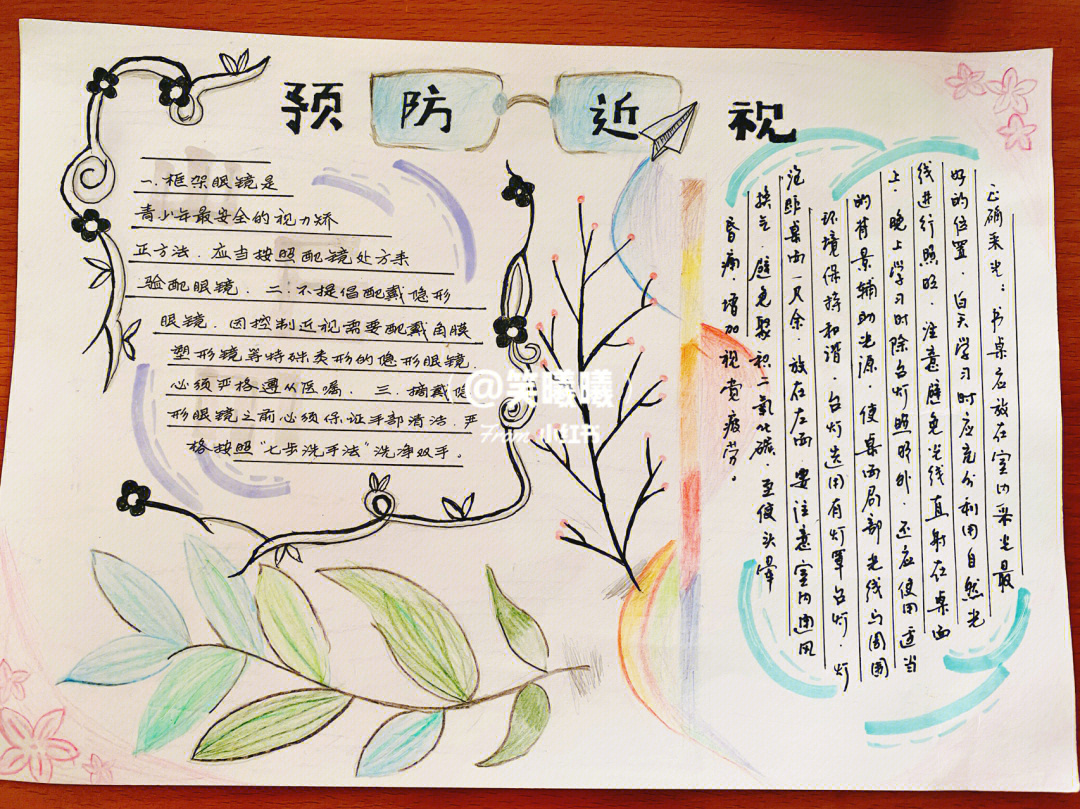 预防近视
一、框架眼镜是
青少年最安全的视力矫
正方法,应当按照配镜处方来
验配眼镜. 二:不提倡配戴隐形
眼镜,因控制近视需要配戴角膜
塑形镜等特殊类形的隐形眼镜.
必须严格遵从医嘱. 三、摘戴隐
形眼镜之前必须保证手部清洁,严
格按照“七步洗手法”洗净双手。
正确采光:书桌应放在室内采光最
好的位置,白天学习时应充分利用自然光
线进行照明,注意避免光线直射在桌面
上,晚上学习时除台灯照明外,还应使用适当
的背景辅助光源,使桌面局部光线与周围
环境保持和谐,台灯选用有灯罩台灯,灯
泡距桌面一尺余,放在左面,要注意室内通风
换气,避免聚积二氧化碳,至使头晕
昏痛,增加视觉疲劳。
@笑曦曦
From 小红书